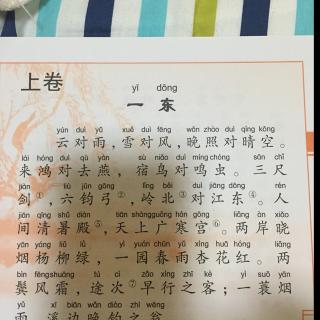 上卷
yī dōng
一 东
yún duì yǔ xuě duì fēng wǎn zhào duì qíng kōng
云对雨，雪对风，晚照对晴空。
lái hóng duì qù yàn sù niǎo duì míng chóng sān chǐ
来鸿对去燕，宿鸟对鸣虫。三尺
jiàn liù jūn gōng lǐng běi duì jiāng dōng rén
剑①，六钧弓②，岭北③对江东④。人
jiān qīng shǔ diàn tiān shàng guǎng hán gōng liǎng àn xiǎo
间清暑殿⑤，天上广寒宫⑥。两岸晓
yān yáng liǔ lǜ yì yuán chūn yǔ xìng huā hóng liǎng
烟杨柳绿，一园春雨杏花红。两
bìn fēng shuāng tú cì zǎo xíng zhī kè yì suō yān
鬓风霜，途次⑦早行之客；一蓑烟
yǔ xī biān wǎn diào zhī wēng
雨，溪边晚钓之翁。